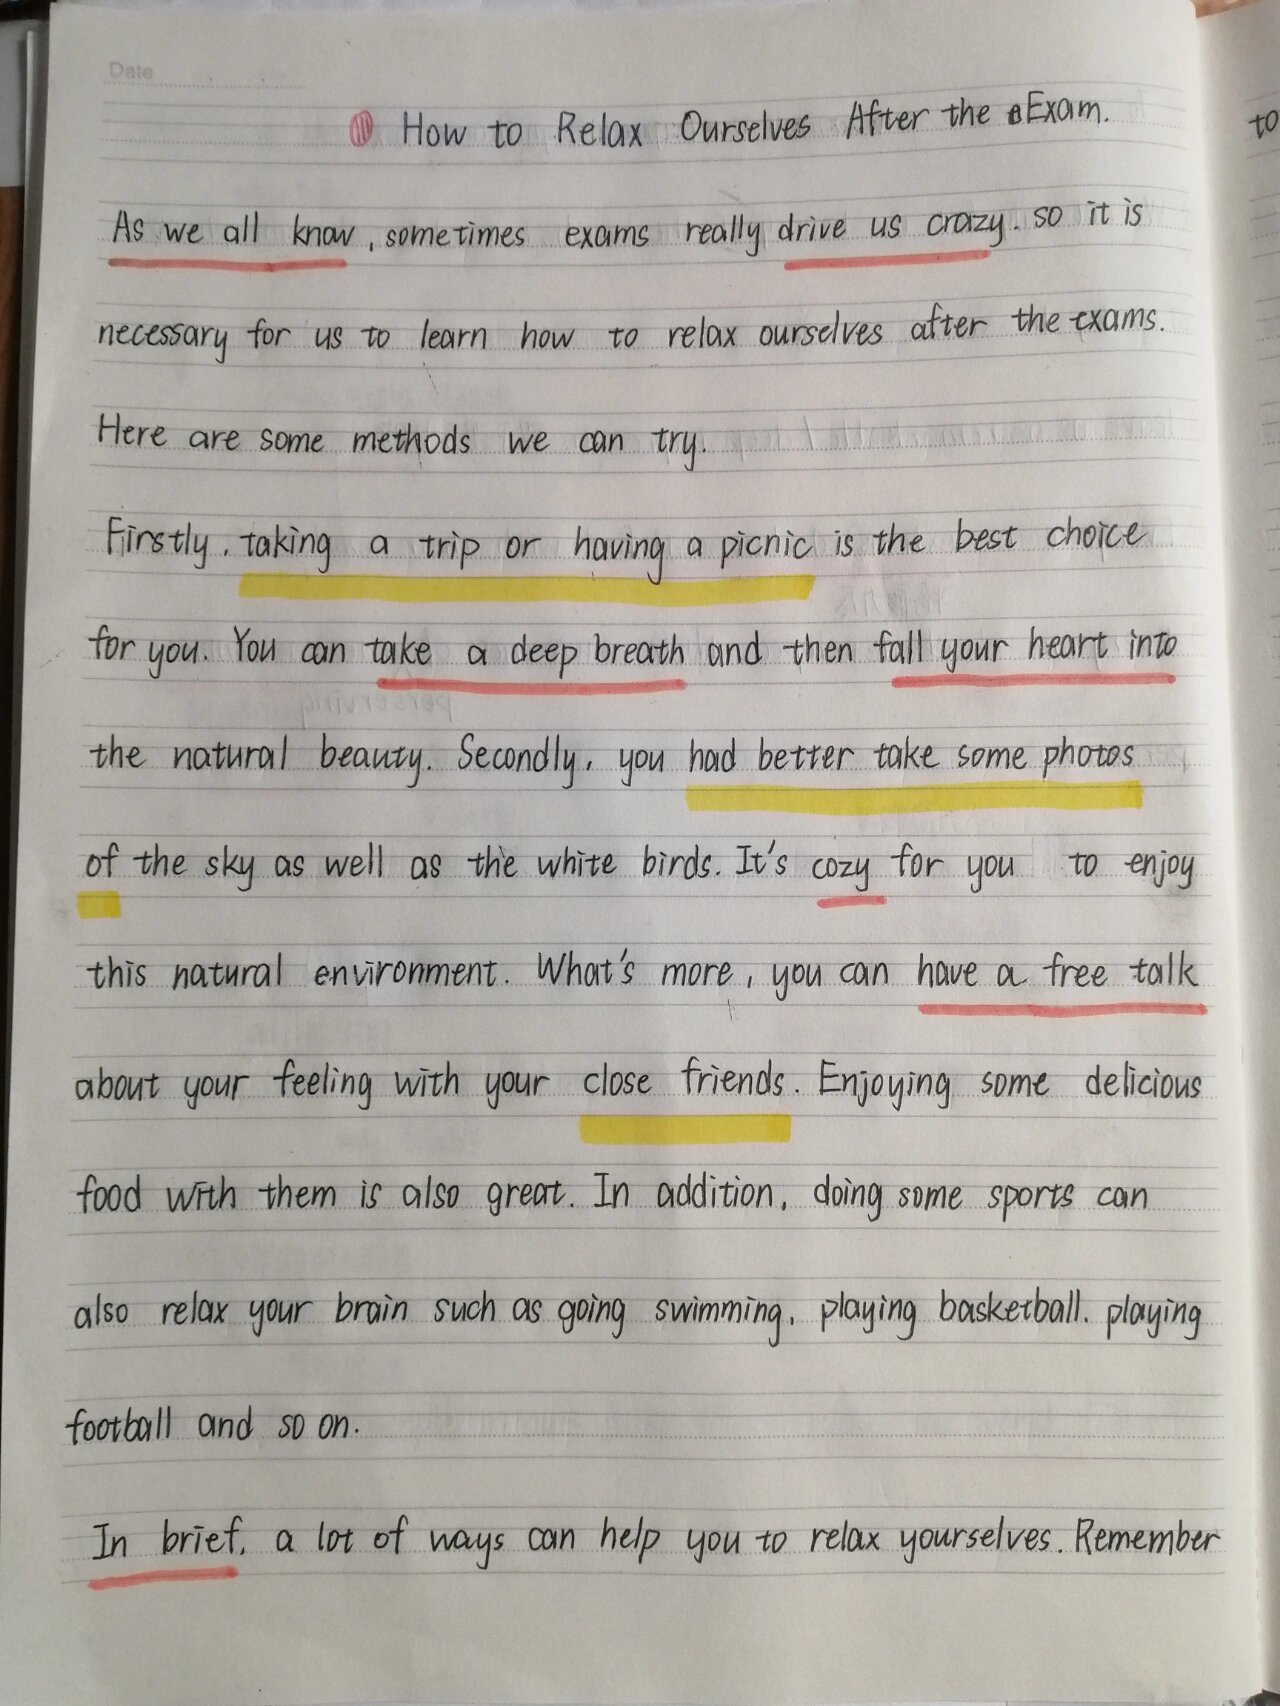 Date
How to Relax Ourselves After the Exam.
to
As we all know, sometimes exams really drive us crazy. so it is
necessary for us to learn how to relax ourselves after the exams.
Here are some methods we can try.
Firstly, taking a trip or having a picnic is the best choice
for you. You can take a deep breath and then fall your heart into
the natural beauty. Secondly, you had better take some photos
of the sky as well as the white birds. It's cozy for you to enjoy
this natural environment. What's more, you can have a free talk
about your feeling with your close friends. Enjoying some delicious
food with them is also great. In addition, doing some sports can
also relax your brain such as going swimming, playing basketball. playing
football and so on.
In brief, a lot of ways can help you to relax yourselves. Remember